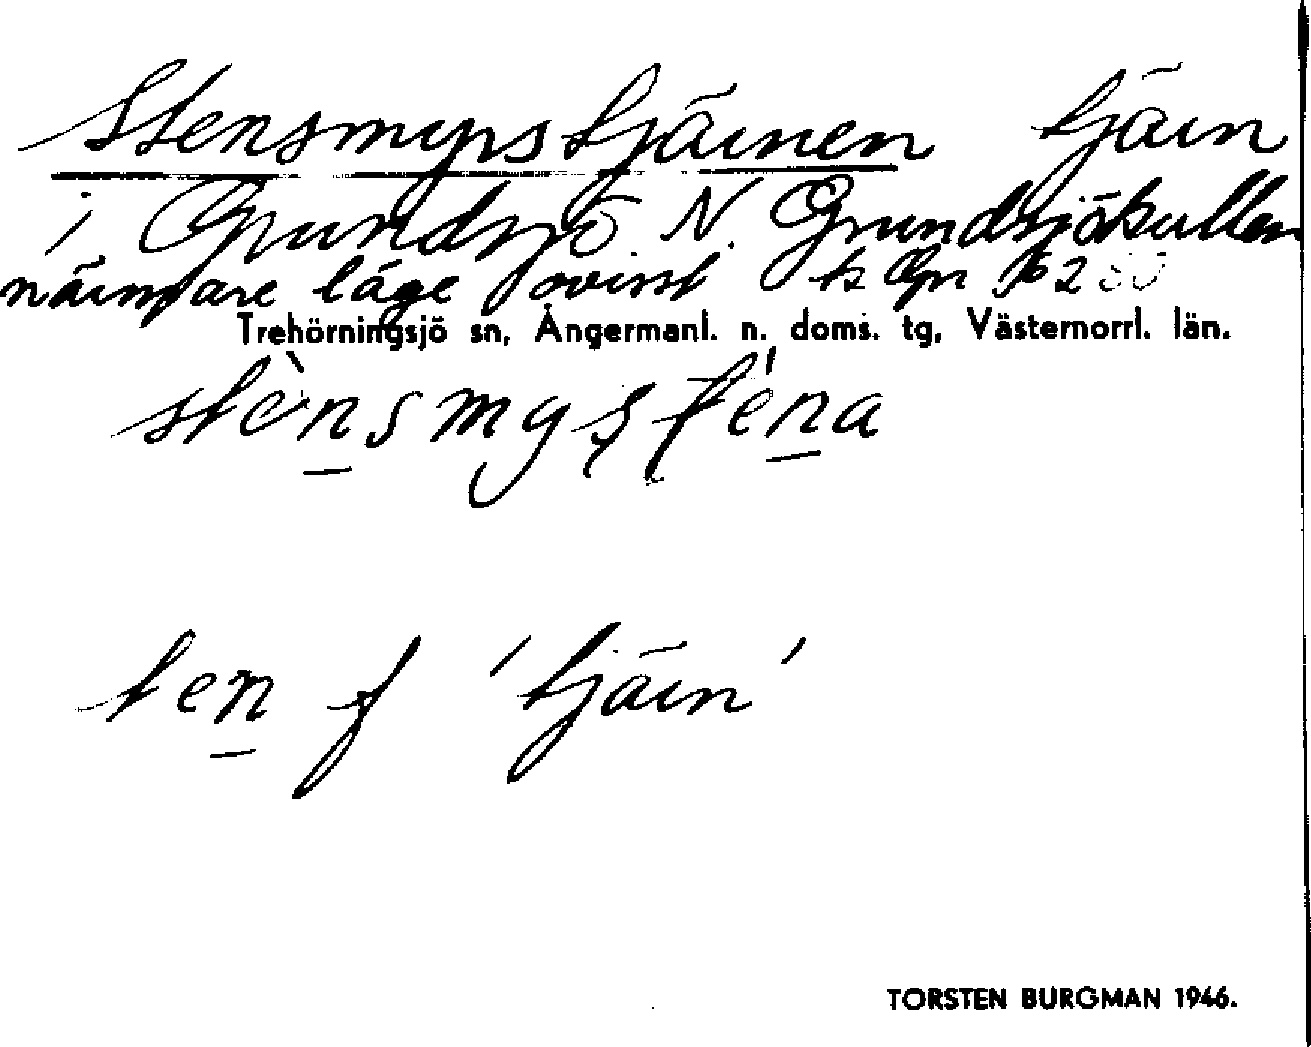 Stensmyrstjärnen tjärn
i Grundsjö N. Grundsjökullen
närmare läge ovisst
Trehörningsjö sn, Ångermanl. n. doms. tg, Västernorrl. län.
stènsmysténa
ten f 'tjärn'
TORSTEN BURGMAN 1946.